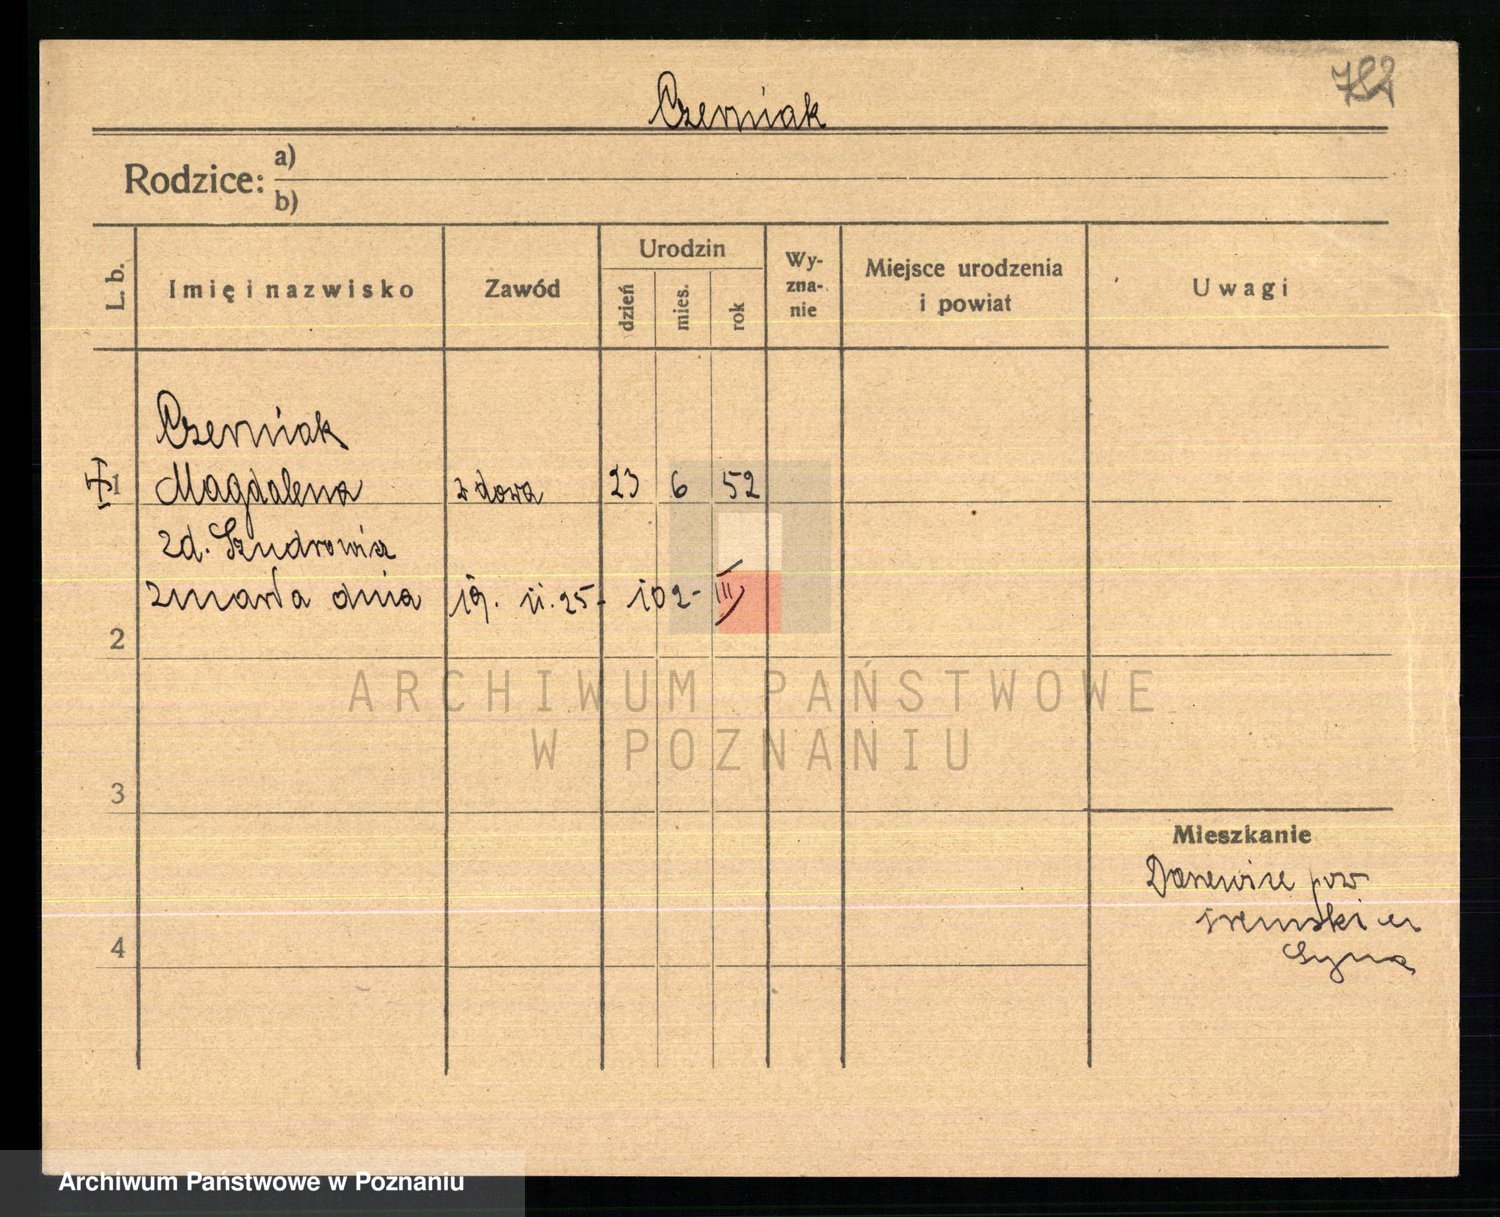 782
Czerniak
Rodzice: a)
b)
L. b.
Imię i nazwisko
Zawód
Urodzin
dzień
mies.
rok
Wy-
zna-
nie
Miejsce urodzenia
i powiat
Uwagi
Czerniak
1 Magdalena wdowa 23 6 52
zd. Szudrowicz
zmarła dnia 19. 11. 25 - 102 - III
2
ARCHIWUM PAŃSTWOWE
W POZNANIU
3
Mieszkanie
pow
śremski u
Syna
4
Archiwum Państwowe w Poznaniu